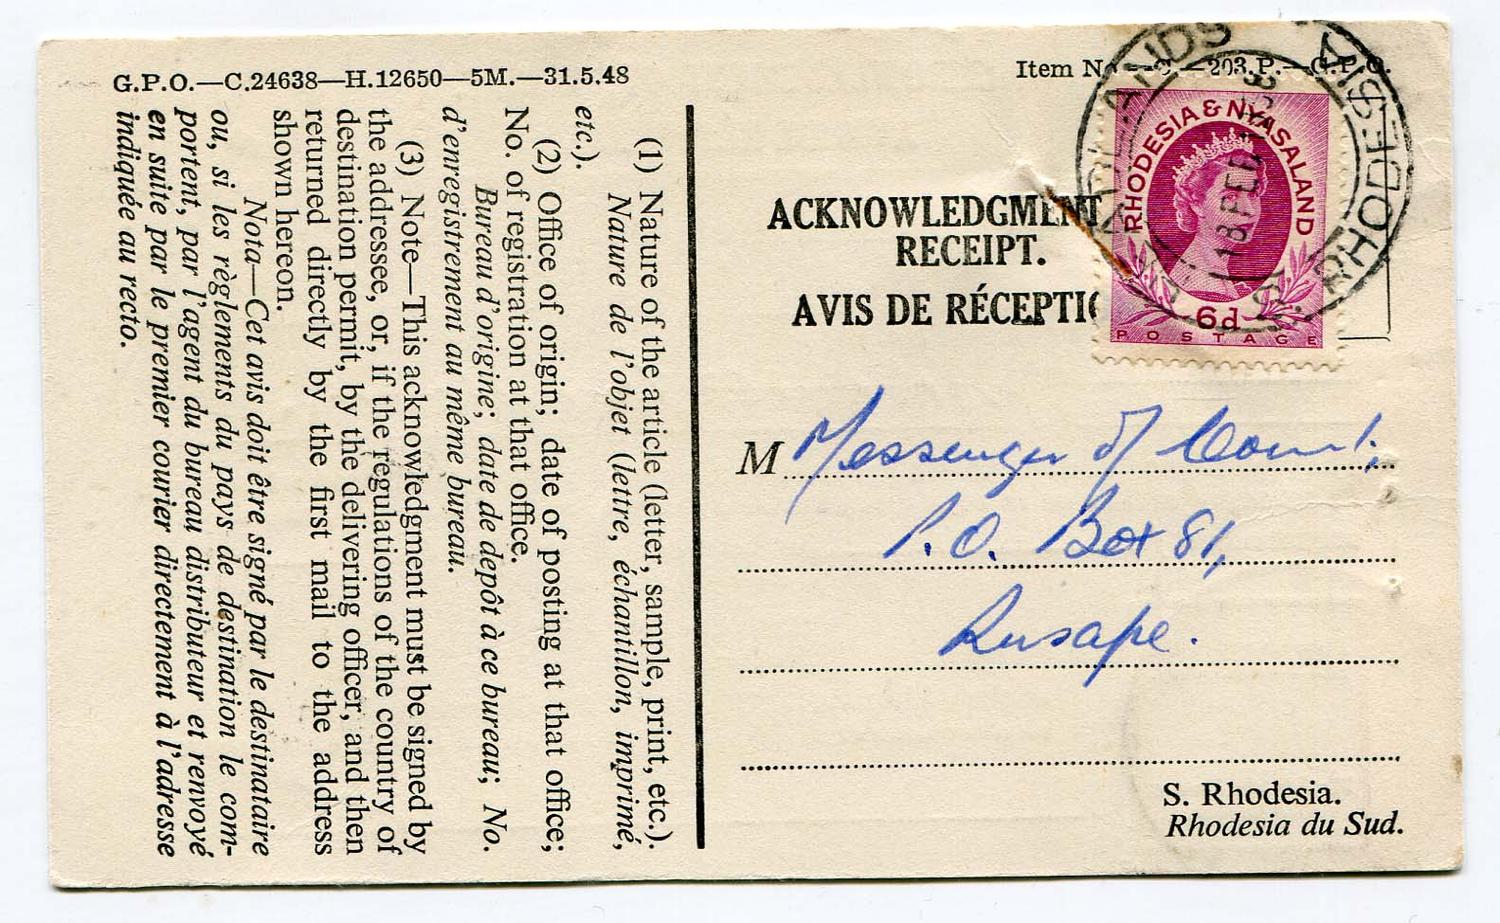 G.P.O.—C.24638—H.12650—5M.—31.5.48
Item
203.P.—G.P.O.
RHODESIA & NYASALAND
6d
POSTAGE
RHODESIA
ACKNOWLEDGMENT
RECEIPT.
AVIS DE
M Messenger of Court,
P.O. Box 81,
Rusape.
S. Rhodesia.
Rhodesia du Sud.
(1) Nature of the article (letter, sample, print, etc.).
Nature de l'objet (lettre, échantillon, imprimé,
etc.).
(2) Office of origin; date of posting at that office;
No. of registration at that office.
Bureau d'origine; date de depôt à ce bureau; No.
d'enregistrement au même bureau.
(3) Note—This acknowledgment must be signed by
the addressee, or, if the regulations of the country of
destination permit, by the delivering officer, and then
returned directly by the first mail to the address
shown hereon.
Nota—Cet avis doit être signé par le destinataire
ou, si les règlements du pays de destination le com-
portent, par l'agent du bureau distributeur et renvoyé
en suite par le premier courier directement à l'adresse
indiquée au recto.